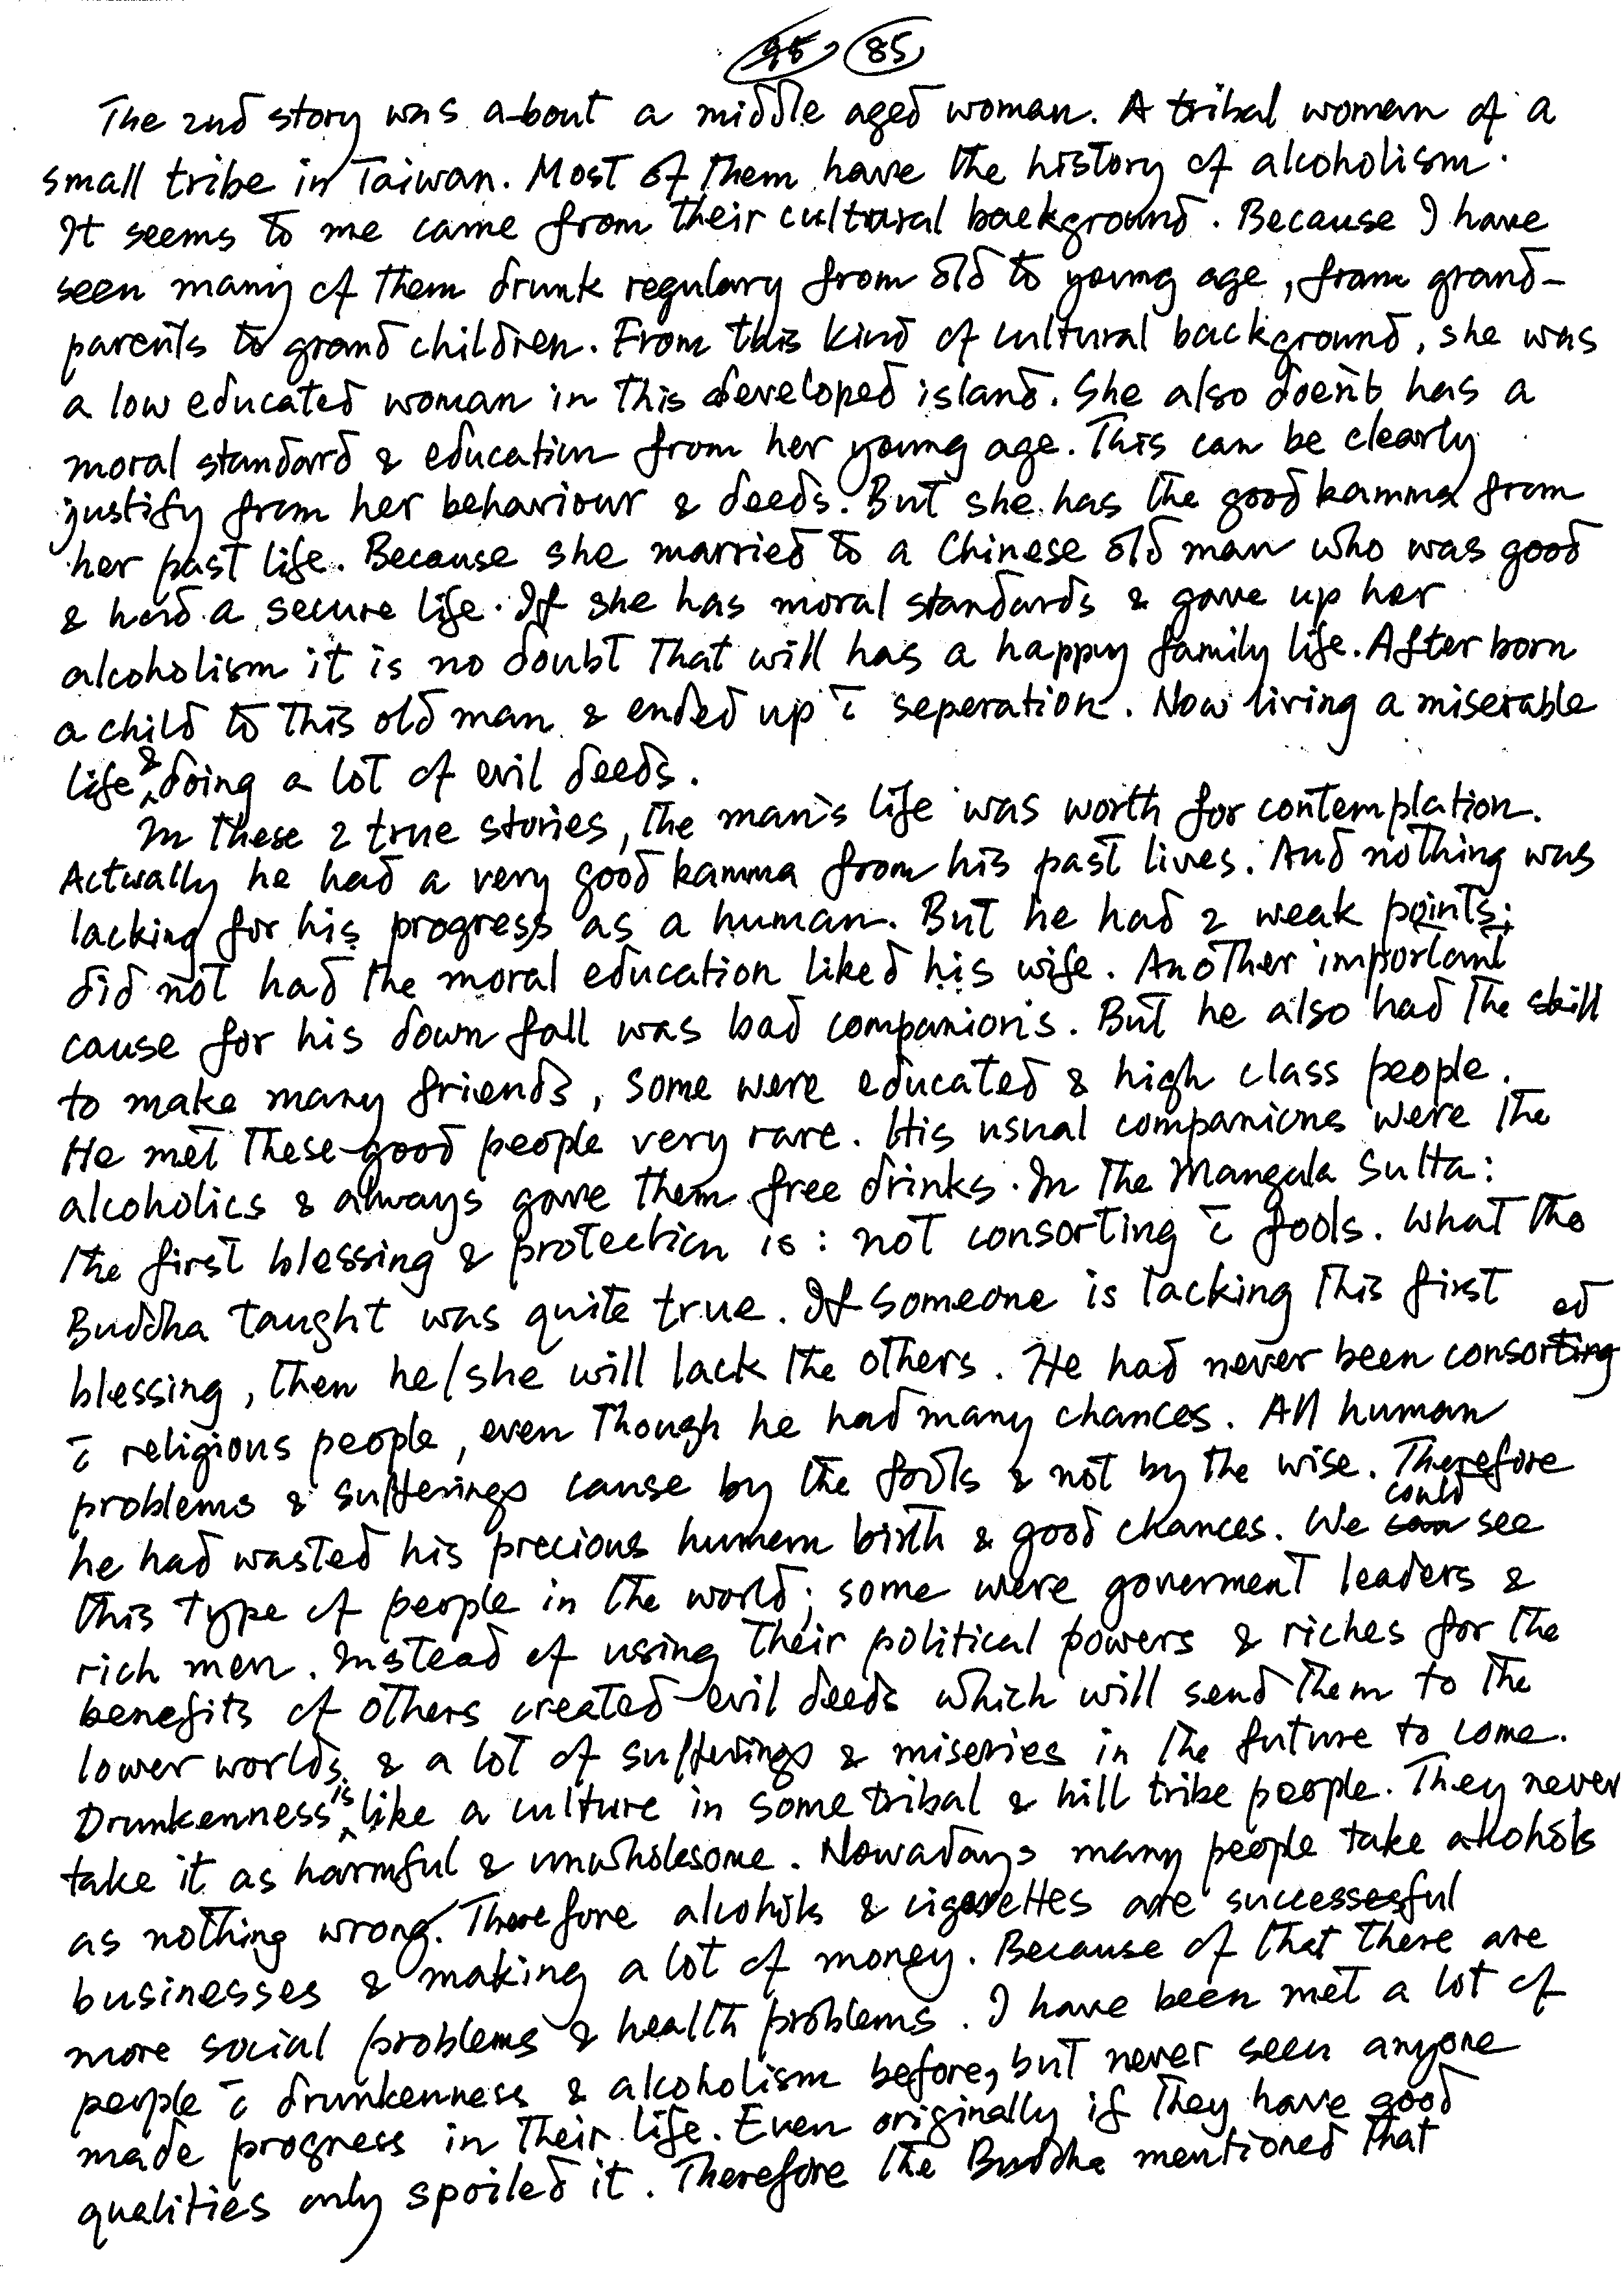 85
The 2nd story was about a middle aged woman. A tribal woman of a
small tribe in Taiwan. Most of them have the history of alcoholism.
It seems to me came from their cultural background. Because I have
seen many of them drunk regulary from old to young age, from grand-
parents to grand children. From this kind of cultural background, she was
a low educated woman in this developed island. She also doen't has a
moral standard & education from her young age. This can be clearly
justify from her behaviour & deeds. But she has the good kamma from
her past life. Because she married to a Chinese old man who was good
& had a secure life. If she has moral standards & gave up her
alcoholism it is no doubt that will has a happy family life. After born
a child to this old man & ended up c̄ seperation. Now living a miserable
life & doing a lot of evil deeds.
In these 2 true stories, the man's life was worth for contemplation.
Actually he had a very good kamma from his past lives. And nothing was
lacking for his progress as a human. But he had 2 weak points;
did not had the moral education liked his wife. Another important
cause for his down fall was bad companions. But he also had the skill
to make many friends, some were educated & high class people.
He met these good people very rare. His usual companions were the
alcoholics & always gave them free drinks. In the Mangala Sutta:
the first blessing & protection is: not consorting c̄ fools. What the
Buddha taught was quite true. If someone is lacking this first
blessing, then he/she will lack the others. He had never been consorted
c̄ religious people, even though he had many chances. All human
problems & sufferings cause by the fools & not by the wise. Therefore
he had wasted his precious human birth & good chances. We could see
this type of people in the world; some were goverment leaders &
rich men. Instead of using their political powers & riches for the
benefits of others created evil deeds which will send them to the
lower worlds, & a lot of sufferings & miseries in the future to come.
Drunkenness is like a culture in some tribal & hill tribe people. They never
take it as harmful & unwholesome. Nowadays many people take alcohols
as nothing wrong. Therefore alcohols & cigarettes are successful
businesses & making a lot of money. Because of that there are
more social problems & health problems. I have been met a lot of
people c̄ drunkenness & alcoholism before, but never seen anyone
made progress in their life. Even originally if they have good
qualities only spoiled it. Therefore the Buddha mentioned that